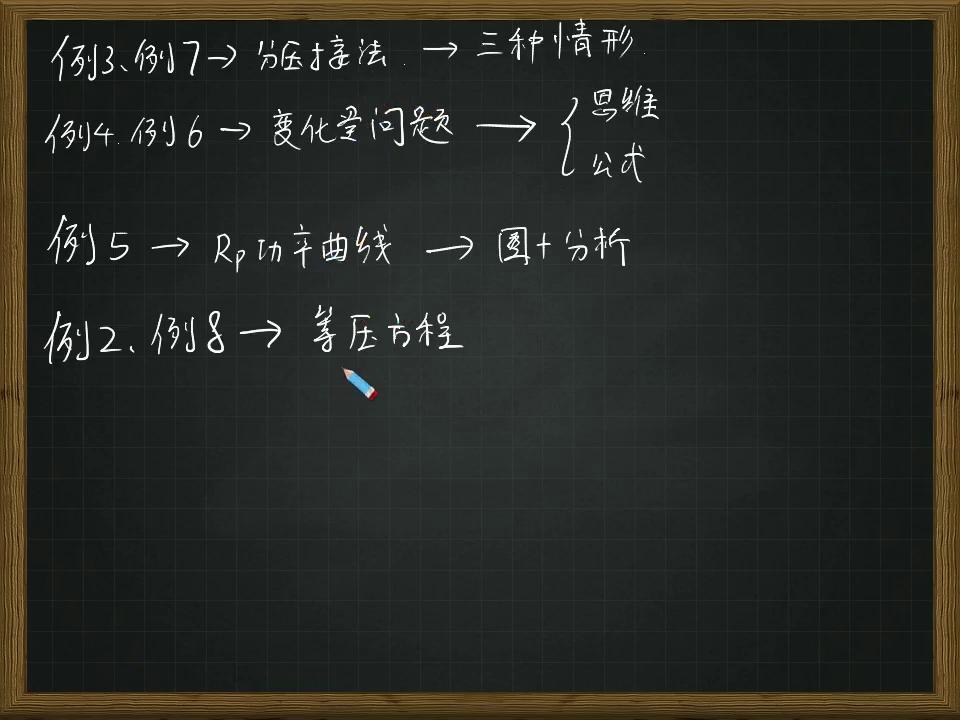 例3、例7→分压接法.→三种情形.
例4.例6→变化量问题→{思维
公式
例5→Rp功率曲线→图+分析
例2、例8→等压方程